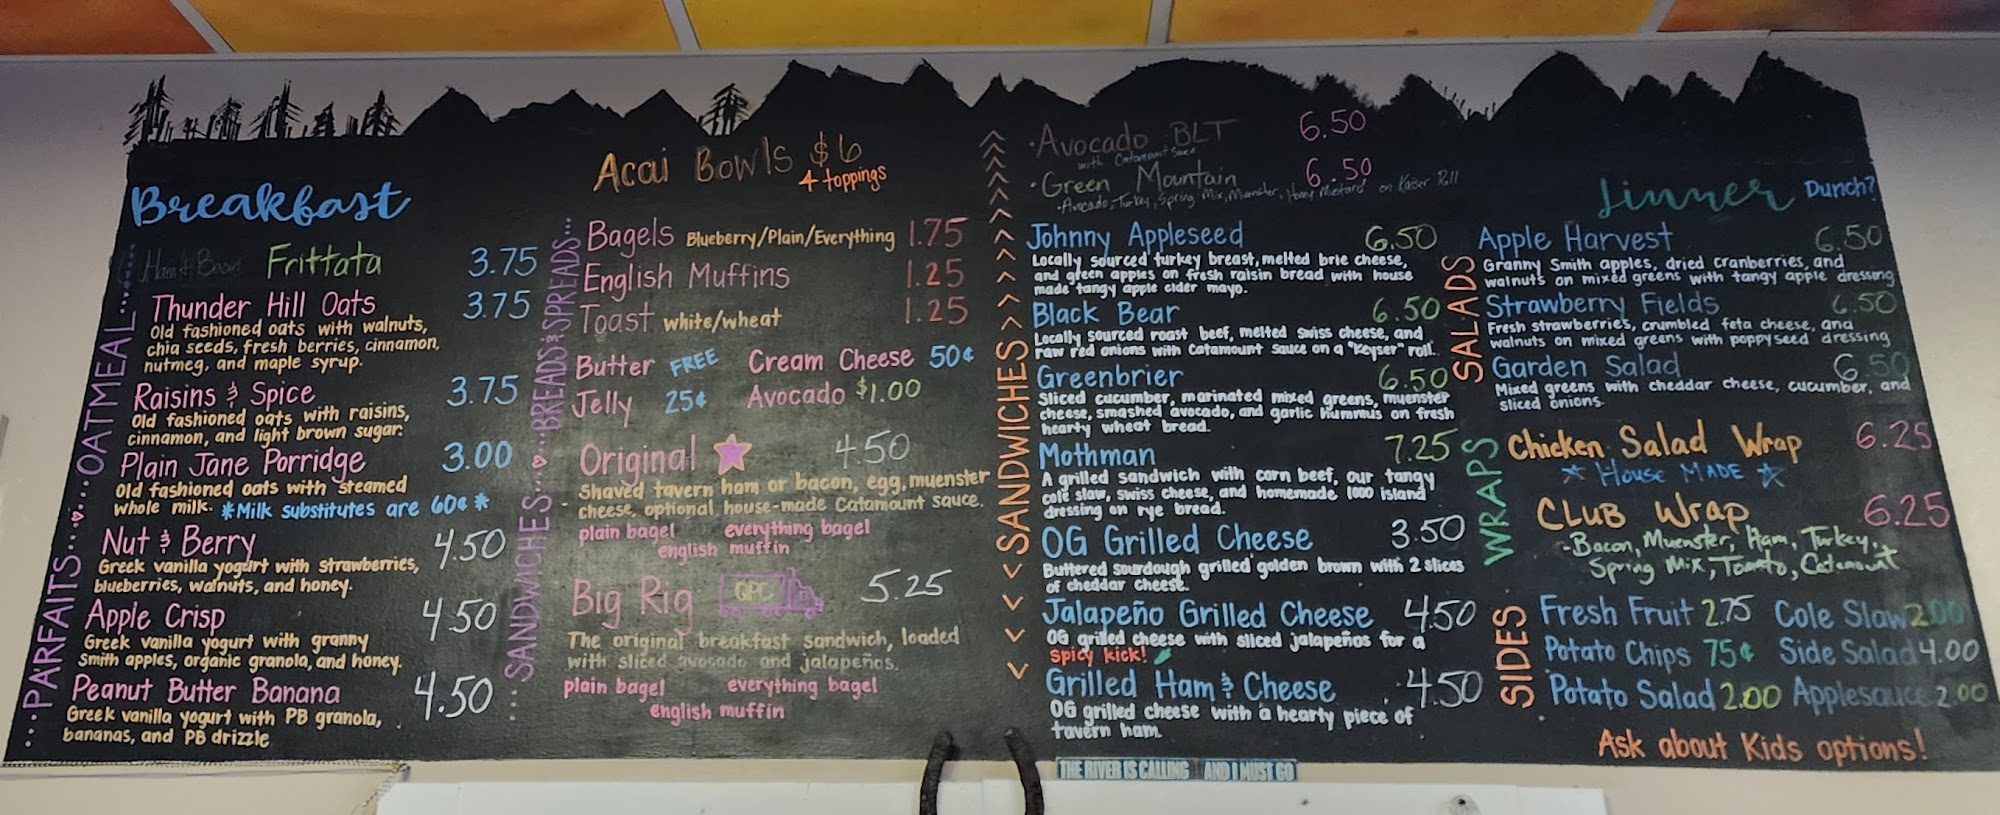 Breakfast
OATMEAL
Frittata 3.75
Thunder Hill Oats 3.75
Old fashioned oats with walnuts,
chia seeds, fresh berries, cinnamon,
nutmeg, and maple syrup.
Raisins & Spice 3.75
Old fashioned oats with raisins,
cinnamon, and light brown sugar.
Plain Jane Porridge 3.00
Old fashioned oats with steamed
whole milk. *Milk substitutes are 60¢*
PARFAITS
Nut & Berry 4.50
Greek vanilla yogurt with strawberries,
blueberries, walnuts, and honey.
Apple Crisp 4.50
Greek vanilla yogurt with granny
Smith apples, organic granola, and honey.
Peanut Butter Banana 4.50
Greek vanilla yogurt with PB granola,
bananas, and PB drizzle
Acai Bowls $6
4 toppings
BREADS & SPREADS
Bagels Blueberry/Plain/Everything 1.75
English Muffins 1.25
Toast white/wheat 1.25
Butter FREE Cream Cheese 50¢
Jelly 25¢ Avocado $1.00
SANDWICHES
Original 4.50
Shaved tavern ham or bacon, egg, muenster
cheese, optional house-made Catamount sauce.
plain bagel everything bagel
english muffin
Big Rig GPC 5.25
The original breakfast sandwich, loaded
with sliced avocado and jalapeños.
plain bagel everything bagel
english muffin
SANDWICHES
• Avocado BLT 6.50
with Catamount Sauce
• Green Mountain 6.50
• Avocado, Turkey, Spring Mix, Muenster, Honey Mustard on Kaiser Roll
Johnny Appleseed 6.50
Locally sourced turkey breast, melted brie cheese,
and green apples on fresh raisin bread with house
made tangy apple cider mayo.
Black Bear 6.50
Locally sourced roast beef, melted swiss cheese, and
raw red onions with Catamount Sauce on a "Keyser" roll.
Greenbrier 6.50
Sliced cucumber, marinated mixed greens, muenster
cheese, smashed avocado, and garlic hummus on fresh
hearty wheat bread.
Mothman 7.25
A grilled sandwich with corn beef, our tangy
cole slaw, swiss cheese, and homemade 1000 island
dressing on rye bread.
OG Grilled Cheese 3.50
Buttered sourdough grilled golden brown with 2 slices
of cheddar cheese.
Jalapeño Grilled Cheese 4.50
OG grilled cheese with sliced jalapeños for a
spicy kick!
Grilled Ham & Cheese 4.50
OG grilled cheese with a hearty piece of
tavern ham.
Linner Dunch?
SALADS
Apple Harvest 6.50
Granny Smith apples, dried cranberries, and
walnuts on mixed greens with tangy apple dressing
Strawberry Fields 6.50
Fresh strawberries, crumbled feta cheese, and
walnuts on mixed greens with poppyseed dressing
Garden Salad 6.50
Mixed greens with cheddar cheese, cucumber, and
sliced onions.
WRAPS
Chicken Salad Wrap 6.25
HOUSE MADE
CLUB Wrap 6.25
-Bacon, Muenster, Ham, Turkey,
Spring Mix, Tomato, Catamount
SIDES
Fresh Fruit 2.75 Cole Slaw 2.00
Potato Chips 75¢ Side Salad 4.00
Potato Salad 2.00 Applesauce 2.00
Ask about Kids options!
THE RIVER IS CALLING AND I MUST GO